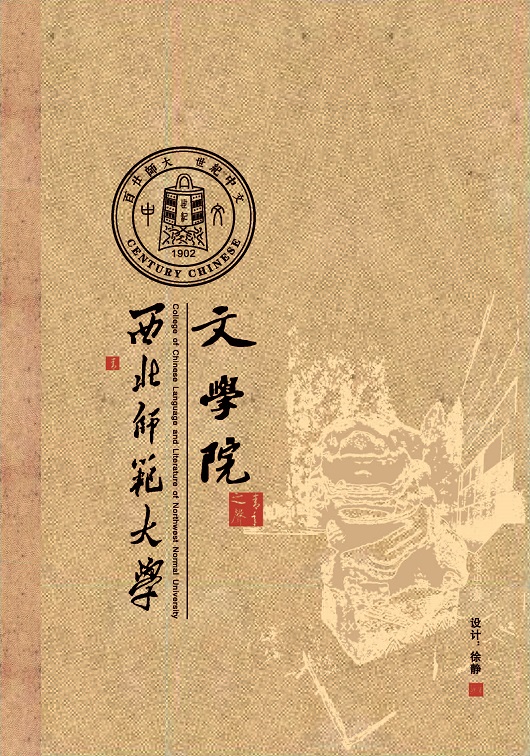 百廿師大 世紀中文
中 文
世紀
1902
CENTURY CHINESE
文學院
College of Chinese Language and Literature of Northwest Normal University
西北師範大學
设计：徐静